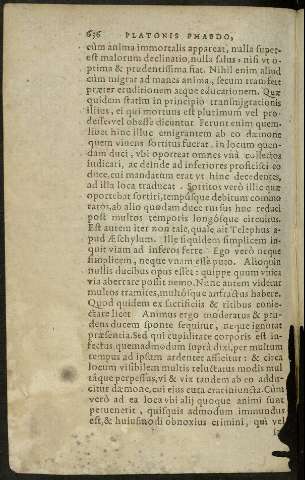 636 PLATONIS PHAEDO,
cùm anima immortalis appareat, nulla super-
est malorum declinatio, nulla salus: nisi vt o-
ptima & prudentissima fiat. Nihil enim aliud
cùm migrat ad manes anima, secum transfert
præter eruditionem atque educationem. Quæ
quidem statim in principio transmigrationis
illius, ei qui mortuus est plurimum vel pro-
desse vel obesse dicuntur. Ferunt enim quem-
libet hinc illuc emigrantem ab eo dæmone
quem viuens sortitus fuerat, in locum quen-
dam duci, vbi oporteat omnes vnà collectos
iudicari, ac deinde ad inferiores proficisci eo
duce, cui mandatum erat vt hinc decedentes,
ad illa loca traducat. Sortitos verò illic quæ
oportebat sortiri, tempúsque debitum commo
ratos, ab alio quodam duce rursus huc reduci
post multos temporis longósque circuitus.
Est autem iter non tale, quale ait Telephus a-
pud Æschylum. Ille siquidem simplicem in-
quit viam ad inferos ferre. Ego verò neque
simplicem, neque vnam esse puto. Alioquin
nullis ducibus opus esset: quippe quum vnica
via aberrare possit nemo. Nunc autem videtur
multos tramites, multósque anfractus habere.
Quod quidem ex sacrificiis & ritibus conie-
ctare licet. Animus ergo moderatus & pru-
dens ducem sponte sequitur, neque ignorat
præsentia. Sed qui cupiditate corporis est in-
fectus, quemadmodum suprà dixi, per multum
tempus ad ipsum ardenter afficitur: & circa
locum visibilem multis reluctatus modis mul
táque perpessus, vi & vix tandem ab eo addu-
citur dæmone, cui eius cura erat iniuncta. Cùm
verò ad ea loca vbi alij quoque animi sunt
peruenerit, quisquis admodum immundus
est, & huiusmodi obnoxius crimini, qui vel